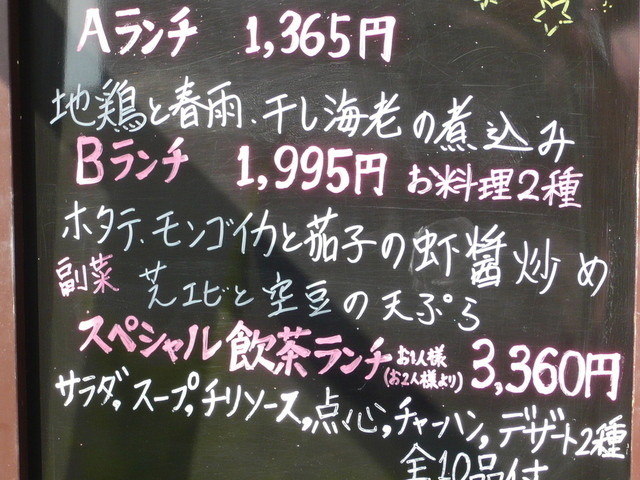 Aランチ 1,365円
地鶏と春雨、干し海老の煮込み
Bランチ 1,995円 お料理2種
ホタテ、モンゴイカと茄子の虾醤炒め
副菜 芝エビと空豆の天ぷら
スペシャル飲茶ランチ お1人様 (お2人様より) 3,360円
サラダ,スープ,チリソース,点心,チャーハン,デザート2種
全10品付